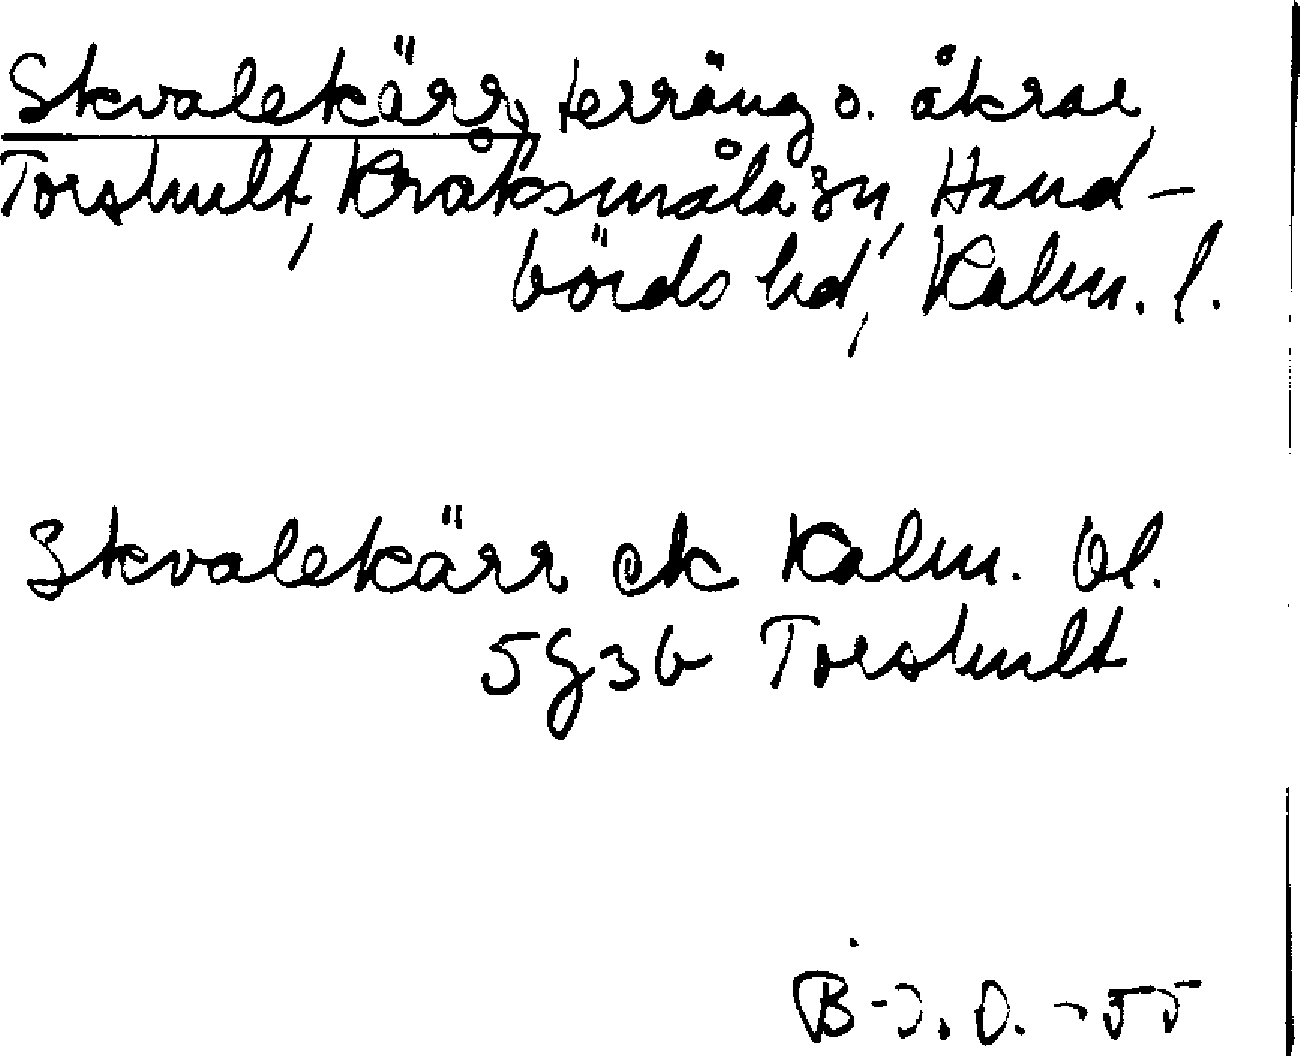 Skvalekärr, terräng o. åkrar,
Torshult, Kråksmåla sn, Hand-
börds hd, Kalm. l.
Skvalekärr ek Kalm. bl.
5G3b Torshult
B-J. O. -55